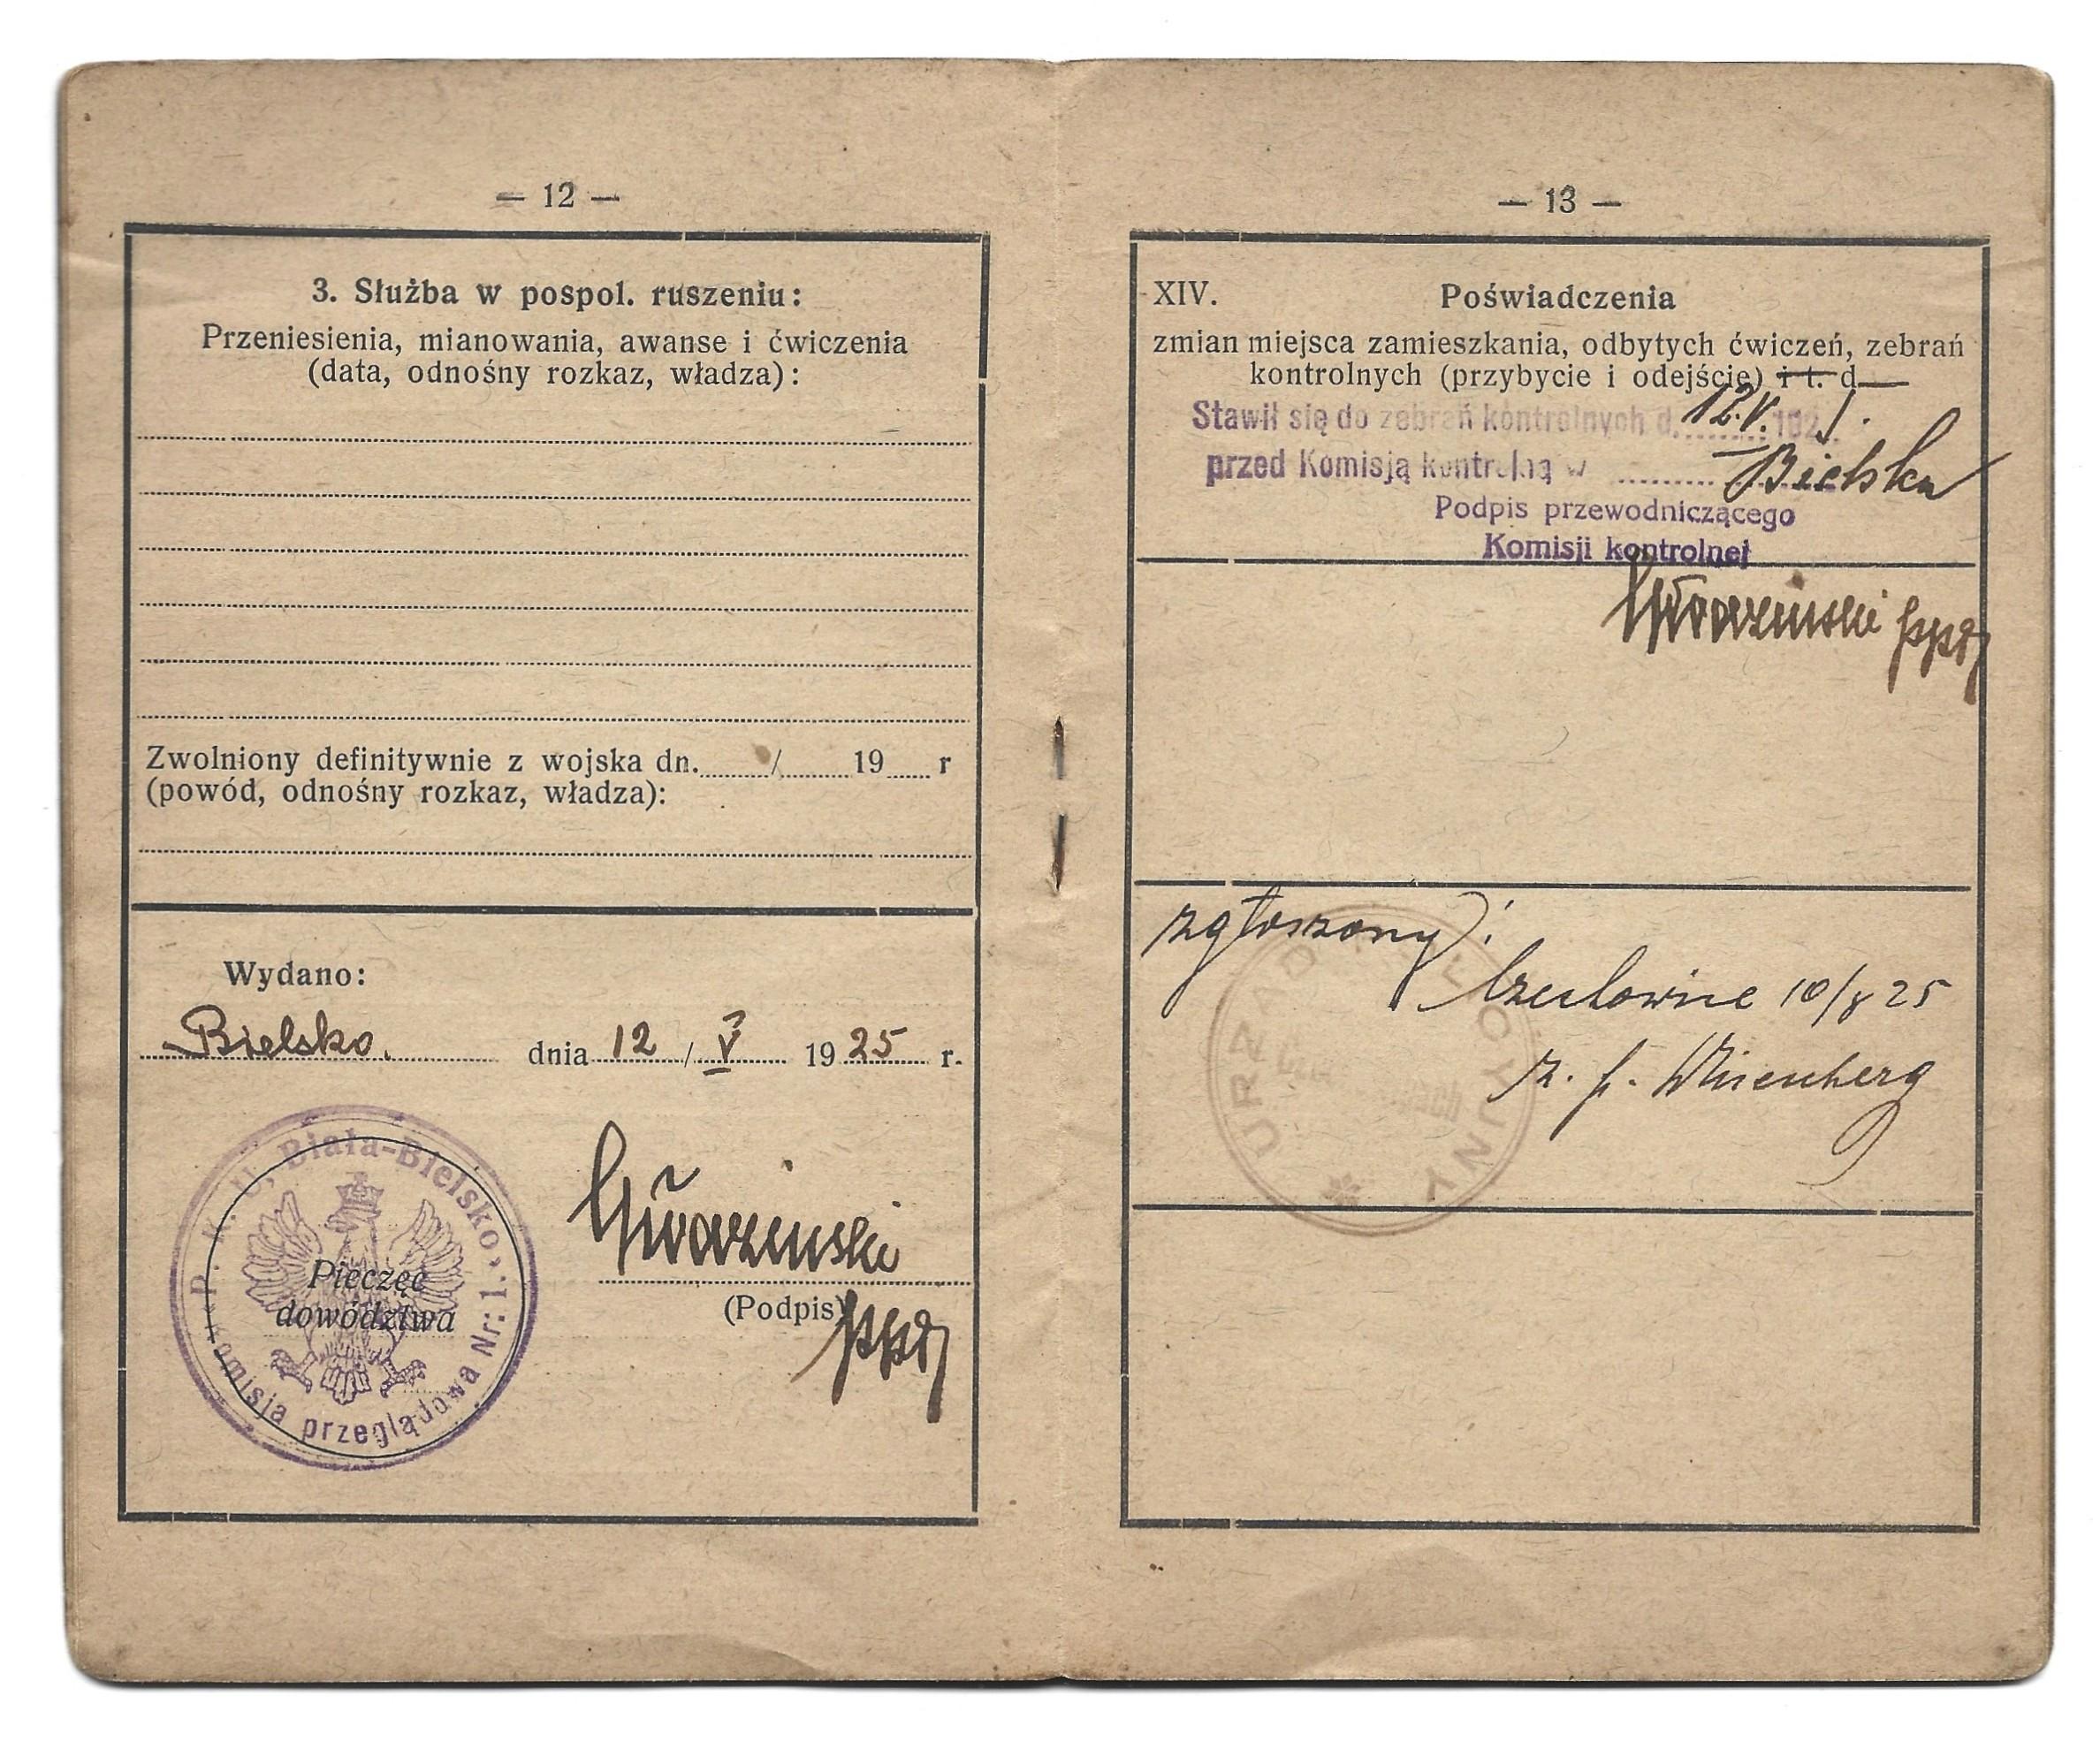 — 12 —
3. Służba w pospol. ruszeniu:
Przeniesienia, mianowania, awanse i ćwiczenia
(data, odnośny rozkaz, władza):
Zwolniony definitywnie z wojska dn. / 19 r
(powód, odnośny rozkaz, władza):
Wydano:
Bielsko. dnia 12 / V 1925 r.
P. K. U. Biała-Bielsko
Komisja przeglądowa Nr: 1
Pieczęć
dowództwa
(Podpis)
ppłk
— 13 —
XIV. Poświadczenia
zmian miejsca zamieszkania, odbytych ćwiczeń, zebrań
kontrolnych (przybycie i odejście) i t. d
Stawił się do zebrań kontrolnych d. 12.V. 192
przed Komisją kontrolną w Bielsku
Podpis przewodniczącego
Komisji kontrolnej
ppłk
zgłoszony:
10/8 25
URZĄD